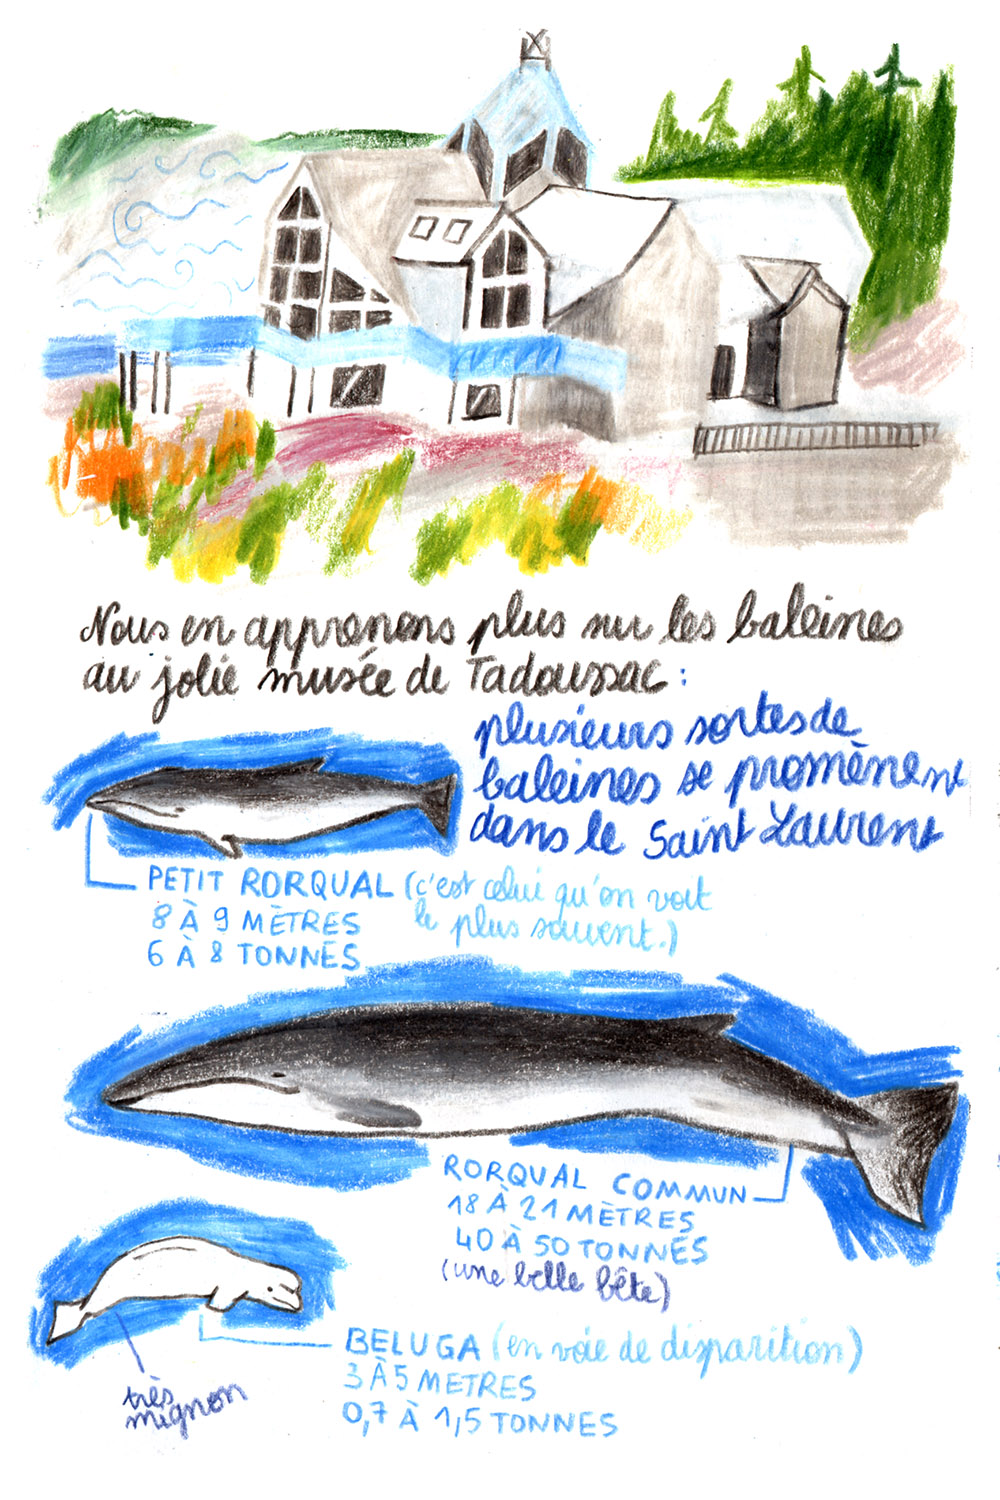 Nous en apprenons plus sur les baleines
au jolie musée de Tadoussac :
plusieurs sortes de
baleines se promènent
dans le Saint Laurent
PETIT RORQUAL (c'est celui qu'on voit
le plus souvent.)
8 À 9 MÈTRES
6 À 8 TONNES
RORQUAL COMMUN
18 À 21 MÈTRES
40 À 50 TONNES
(une belle bête)
BELUGA (en voie de disparition)
3 À 5 METRES
0,7 À 1,5 TONNES
très
mignon